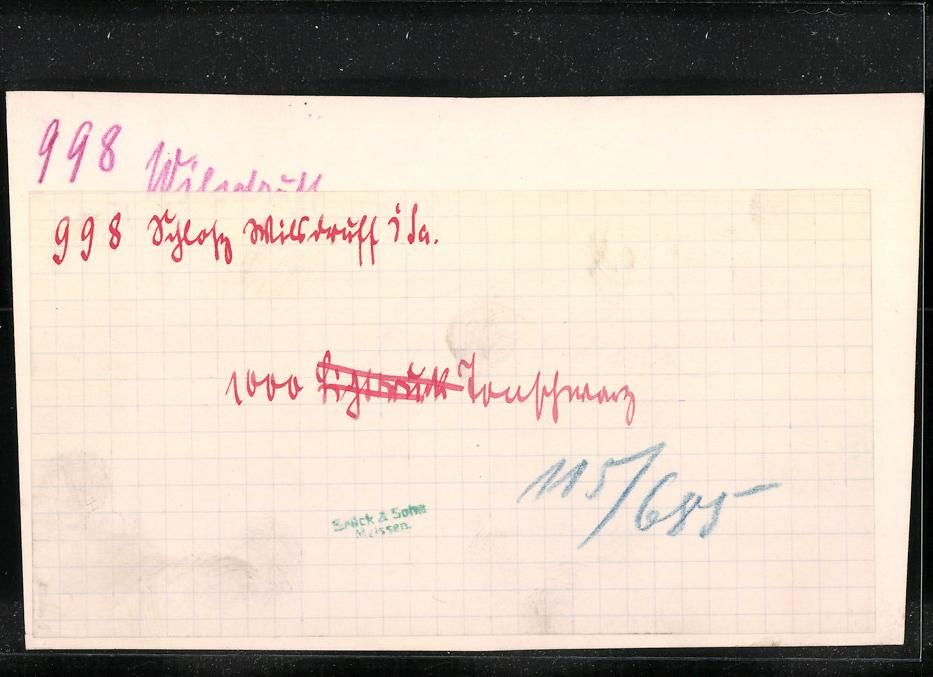 998 Wilsdruff
998 Schloß Wilsdruff i Sa.
1000 Lichtdruck Tonschwarz
115/685
Brück & Sohn
Meissen.